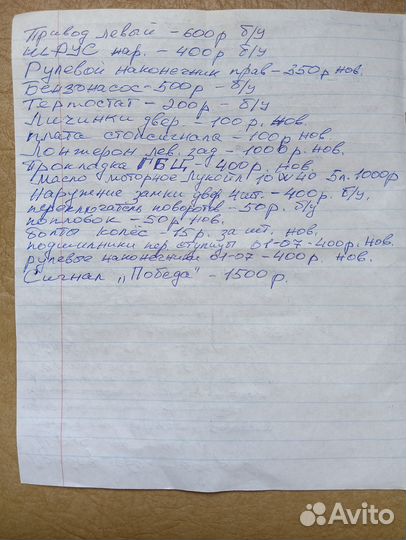 Привод левый - 600р б/у
ШРУС нар. - 400р б/у
Рулевой наконечник прав - 350р нов.
Бензонасос - 500р - б/у
Термостат - 200р - б/у
Личинки двер. - 100р. нов.
плата стопсигнала - 100р нов.
Лонжерон лев. зад - 1000р. нов.
Прокладка ГБЦ - 400р. нов.
Масло моторное Лукойл 10W40 5л. 1000р
Наружние замки двер 4шт. - 400р. б/у.
переключатель поворотов - 50р. б/у
попловок - 50р нов.
болты колёс - 15р. за шт. нов.
подшипники пер ступицы 01-07 - 400р. нов.
рулевые наконечники 01-07 - 400р нов.
Сигнал „Победа" - 1500р.
Avito